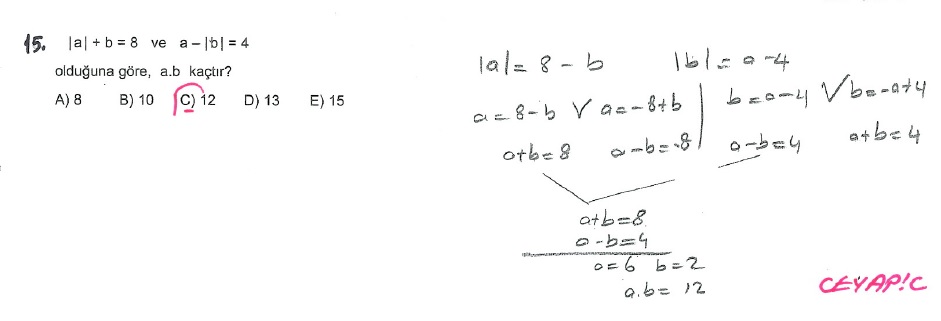 15. |a| + b = 8 ve a – |b| = 4
olduğuna göre, a.b kaçtır?
A) 8 B) 10 C) 12 D) 13 E) 15
|a| = 8 - b |b| = a - 4
a = 8 - b V a = -8 + b | b = a - 4 V b = -a + 4
a + b = 8 a - b = -8 a - b = 4 a + b = 4
a + b = 8
a - b = 4
a = 6 b = 2
a.b = 12
CEYAP!C